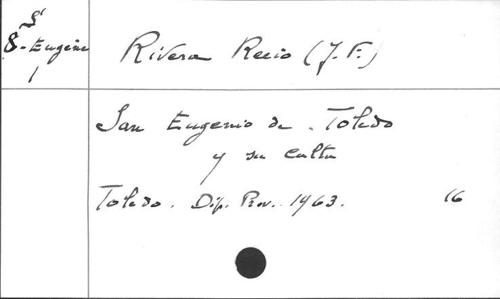 S'
S-Eugène
Rivera Recio (J. F.)
San Eugenio de Toledo
y su culto
Toledo. Dip. Prov. 1963. 16